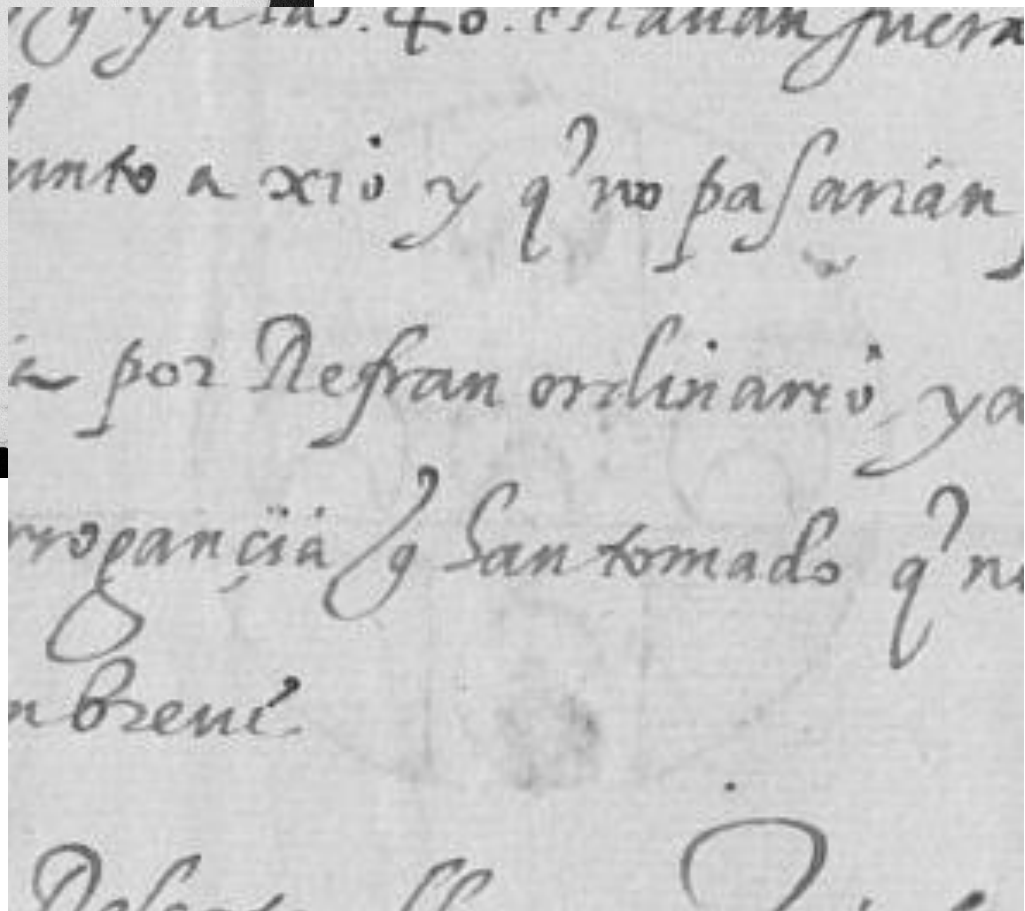 y ya las .40. estauan fuera
junto a xio y q no pasarian
por Refran ordinario, ya
rrogançia y han tomado q
breue.